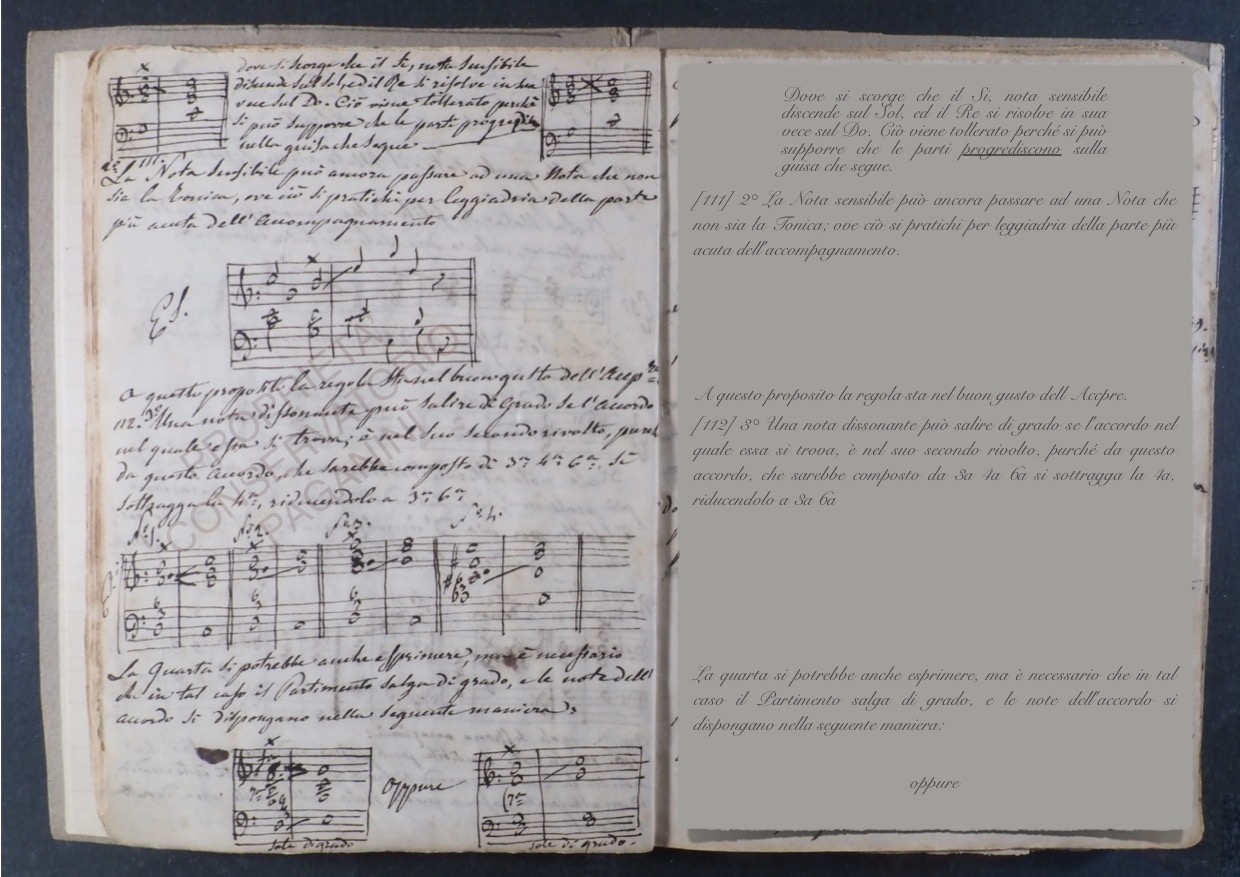 dove si scorge che il Si, nota sensibile
discende sul Sol, ed il Re si risolve in sua
vece sul Do. Ciò viene tollerato perchè
si può supporre che le parti progrediscono
nella guisa che segue
111.
2° La Nota sensibile può ancora passare ad una Nota che non
sia la Tonica, ove ciò si pratichi per leggiadria della parte
più acuta dell'accompagnamento
Es.
A questo proposito la regola sta nel buon gusto dell'Accp.re
112. 3° Una nota dissonante può salire di Grado se l'accordo
nel quale essa si trova, è nel suo secondo rivolto, purchè
da questo accordo, che sarebbe composto di 3a 4a 6a, si
sottragga la 4a, riducendolo a 3a 6a
N°1. N°2. N°3. N°4.
La Quarta si potrebbe anche esprimere, ma è necessario
che in tal caso il Partimento salga di grado, e le note dell'
accordo si dispongano nella seguente maniera:
oppure
sale di grado
sale di grado.
PROPRIETÀ
CONSERVATORIO
PAGANINI
Dove si scorge che il Si, nota sensibile
discende sul Sol, ed il Re si risolve in sua
vece sul Do. Ciò viene tollerato perché si può
supporre che le parti progrediscono sulla
guisa che segue.
[111] 2° La Nota sensibile può ancora passare ad una Nota che
non sia la Tonica; ove ciò si pratichi per leggiadria della parte più
acuta dell'accompagnamento.
A questo proposito la regola sta nel buon gusto dell Accpre.
[112] 3° Una nota dissonante può salire di grado se l'accordo nel
quale essa si trova, è nel suo secondo rivolto, purché da questo
accordo, che sarebbe composto da 3a 4a 6a si sottragga la 4a,
riducendolo a 3a 6a
La quarta si potrebbe anche esprimere, ma è necessario che in tal
caso il Partimento salga di grado, e le note dell'accordo si
dispongano nella seguente maniera:
oppure